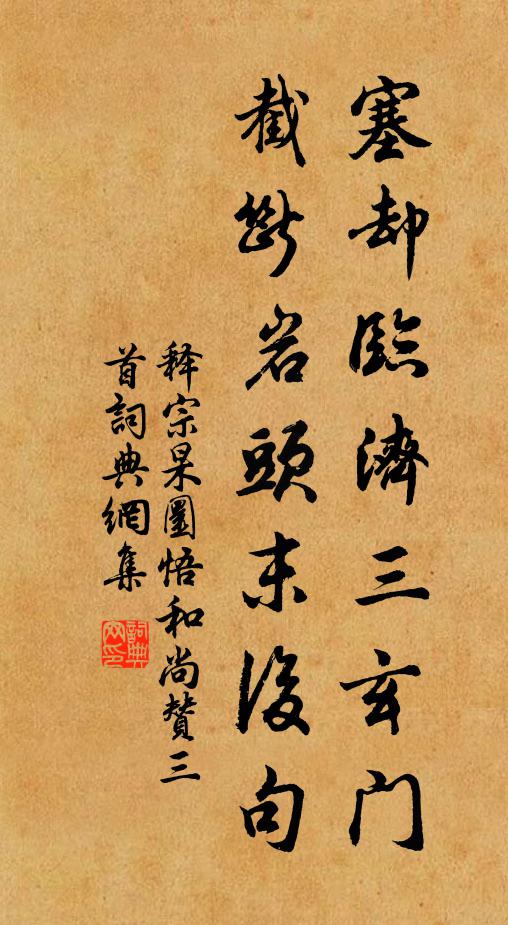 塞却臨濟三玄門
截斷岩頭末後句
释宗杲圜悟和尚贊三
首詞典網集
詞典网印